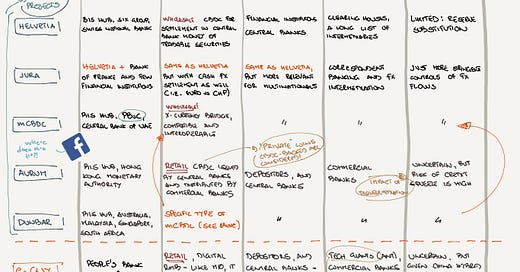 PROJECTS
HELVETIA
BIS HUB, SIX GROUP,
SWISS NATIONAL BANK
WHOLESALE CBDC FOR
SETTLEMENT IN CENTRAL
BANK MONEY OF
TRADABLE SECURITIES
FINANCIAL INSTITUTIONS
CENTRAL BANKS
CLEARING HOUSES,
A LONG LIST OF
INTERMEDIARIES
LIMITED: RESERVE
SUBSTITUTION
JURA
HELVETIA + BANK
OF FRANCE AND FEW
FINANCIAL INSTITUTIONS
SAME AS HELVETIA
BUT WITH CASH FX
SETTLEMENT AS WELL
(I.E. EURO VS CHF)
SAME AS HELVETIA,
BUT MORE RELEVANT
FOR MULTINATIONALS
CORRESPONDENT
BANKING AND FX
INTERMEDIATION
JUST MORE
CONTROLS OF FX
FLOWS
MCBDC
BIS HUB, PBOC,
CENTRAL BANK OF UAE
WHOLESALE!
X-CURRENCY BRIDGE,
AND
INTEROPERABLE
"
"
"
WHERE
DOES
FIT?!
f
"PRIVATE" COINS
CBDC-BACKED ARE
CONSIDERED!
AURUM
BIS HUB, HONG
KONG MONETARY
AUTHORITY
RETAIL CBDC ISSUED
BY CENTRAL BANKS
AND DISTRIBUTED BY
COMMERCIAL BANKS
DEPOSITORS, AND
CENTRAL BANKS
COMMERCIAL
BANKS
IMPACT OF
UNCERTAIN, BUT
RISK OF CREDIT
SQUEEZE IS HIGH
DUNBAR
BIS HUB, AUSTRALIA,
MALAYSIA, SINGAPORE,
SOUTH AFRICA
SPECIFIC TYPE OF
MCBDC (SEE ABOVE)
"
"
"
E-CNY
PEOPLE'S BANK
RETAIL, DIGITAL
RMB - LIKE M0, IT
DEPOSITORS, AND
CENTRAL BANKS -
TECH GIANTS (ANT),
COMMERCIAL BANKS
UNCERTAIN, BUT
GIVEN CHINA HYBRID